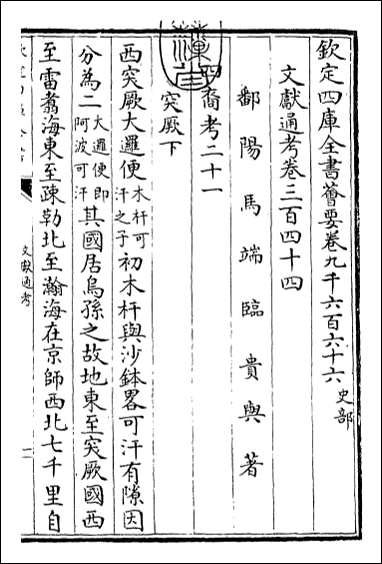 欽定四庫全書薈要卷九千六百六十六 史部
文獻通考卷三百四十四
鄱陽馬端臨貴與著
四裔考二十一
突厥下
西突厥大邏便木杆可汗之子初木杆與沙鉢畧可汗有隙因
分為二大邏便即阿波可汗其國居烏孫之故地東至突厥國西
至雷翥海東至疎勒北至瀚海在京師西北七千里自
文獻通考